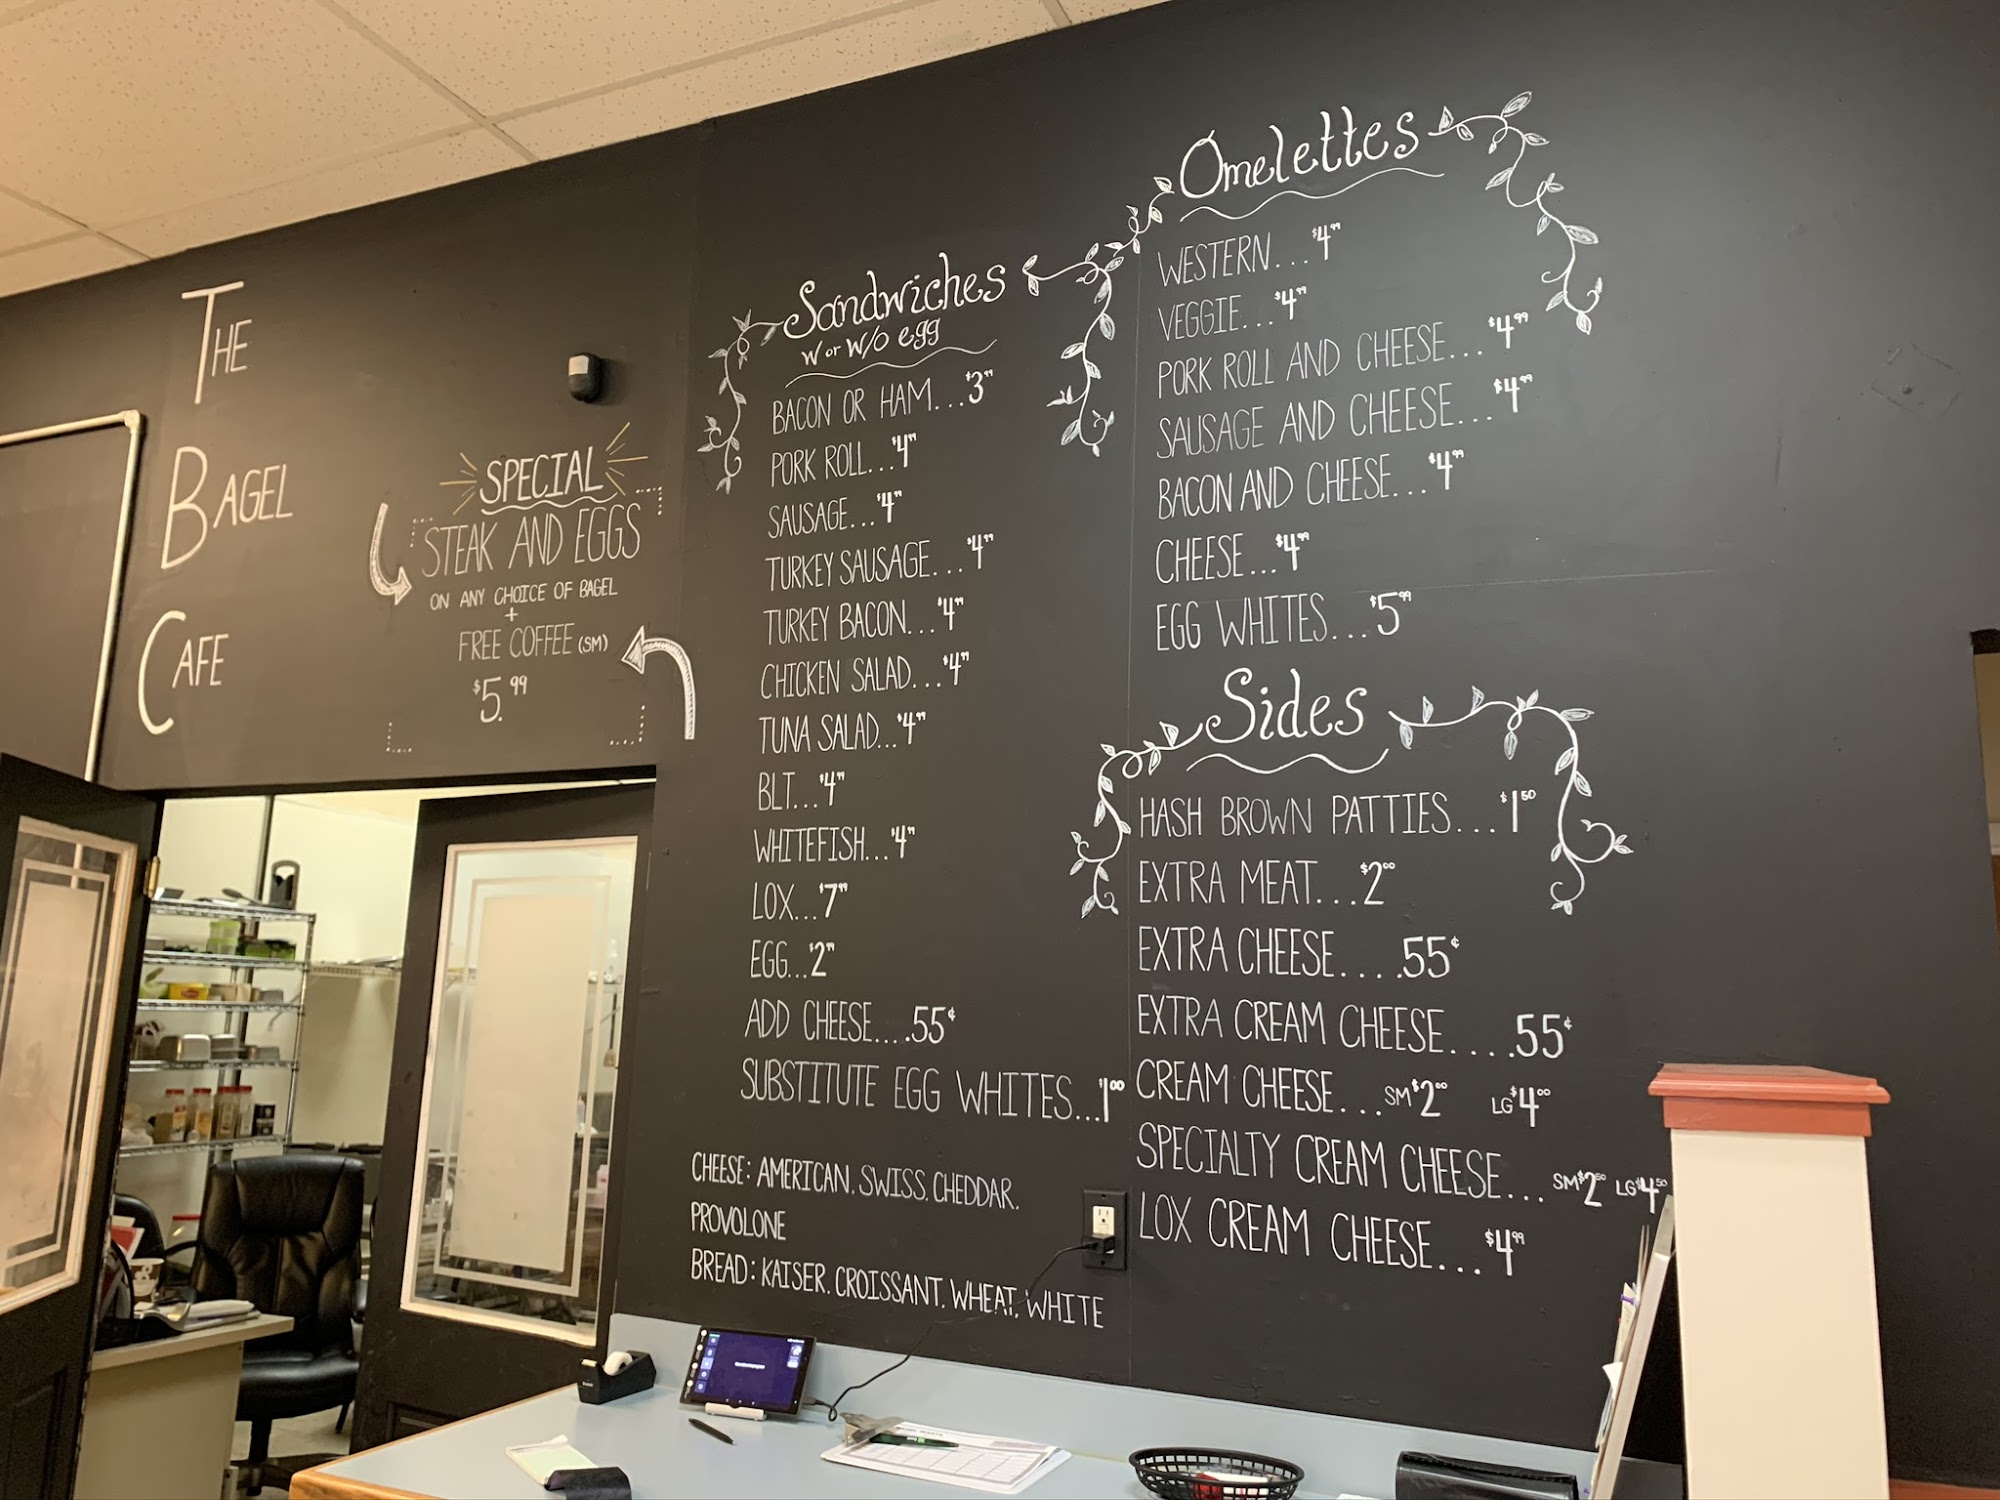 THE
BAGEL
CAFE
SPECIAL
STEAK AND EGGS
ON ANY CHOICE OF BAGEL
+
FREE COFFEE (SM)
$5.99
Sandwiches
W or W/O egg
BACON OR HAM...$3.99
PORK ROLL...$4.99
SAUSAGE...$4.99
TURKEY SAUSAGE...$4.99
TURKEY BACON...$4.99
CHICKEN SALAD...$4.99
TUNA SALAD...$4.99
BLT...$4.99
WHITEFISH...$4.99
LOX...$7.99
EGG...$2.99
ADD CHEESE....55¢
SUBSTITUTE EGG WHITES...$1.00
CHEESE: AMERICAN, SWISS, CHEDDAR,
PROVOLONE
BREAD: KAISER, CROISSANT, WHEAT, WHITE
Omelettes
WESTERN...$4.99
VEGGIE...$4.99
PORK ROLL AND CHEESE...$4.99
SAUSAGE AND CHEESE...$4.99
BACON AND CHEESE...$4.99
CHEESE...$4.99
EGG WHITES...$5.99
Sides
HASH BROWN PATTIES...$1.50
EXTRA MEAT...$2.00
EXTRA CHEESE....55¢
EXTRA CREAM CHEESE....55¢
CREAM CHEESE...SM $2.00 LG $4.00
SPECIALTY CREAM CHEESE...SM $2.50 LG $4.50
LOX CREAM CHEESE...$4.99